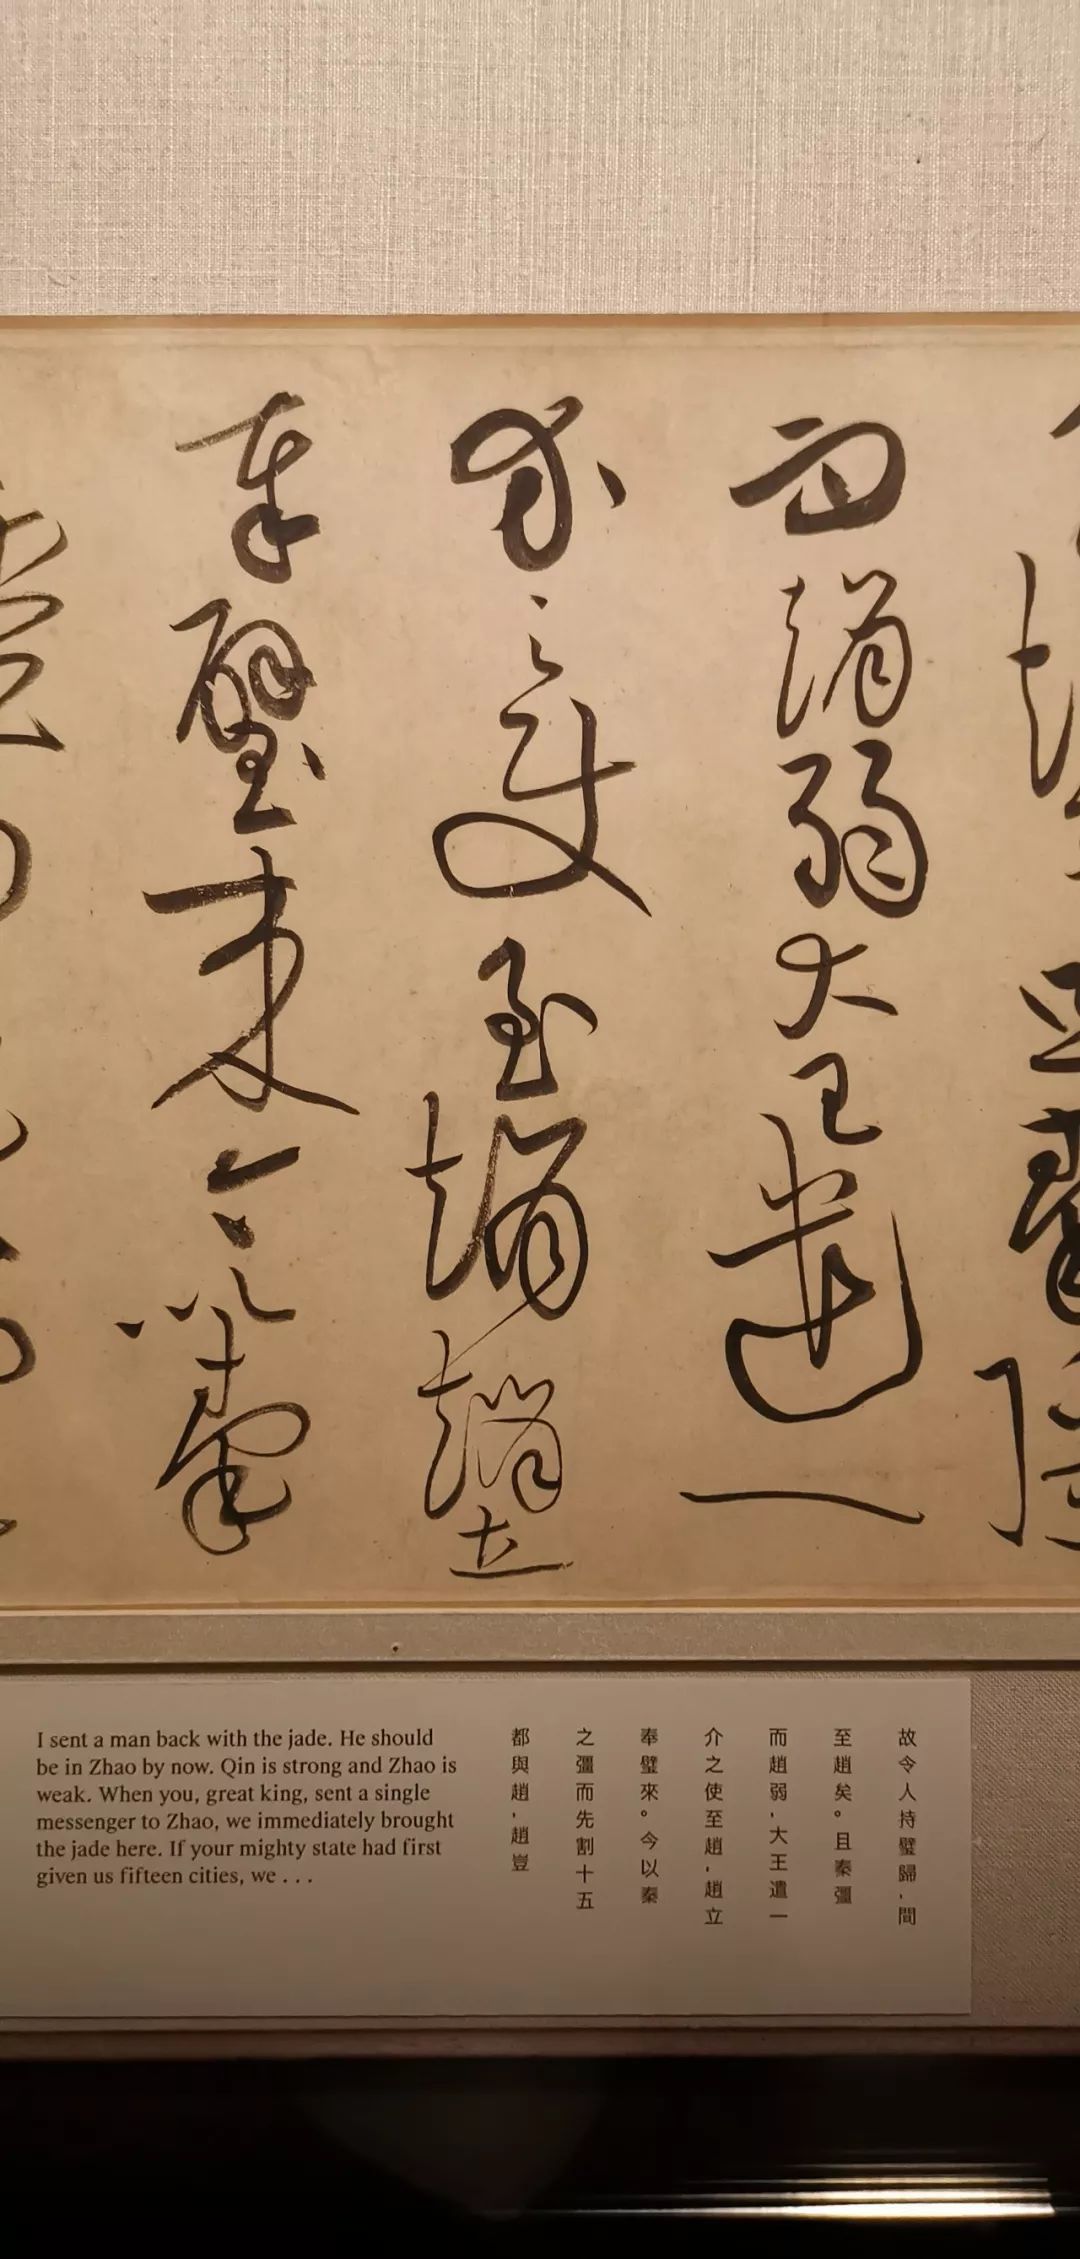 而趙弱大王遣一
介之使至趙趙立
奉璧來今以秦
I sent a man back with the jade. He should
be in Zhao by now. Qin is strong and Zhao is
weak. When you, great king, sent a single
messenger to Zhao, we immediately brought
the jade here. If your mighty state had first
given us fifteen cities, we . . .
故令人持璧歸,間
至趙矣。且秦彊
而趙弱,大王遣一
介之使至趙,趙立
奉璧來。今以秦
之彊而先割十五
都與趙,趙豈